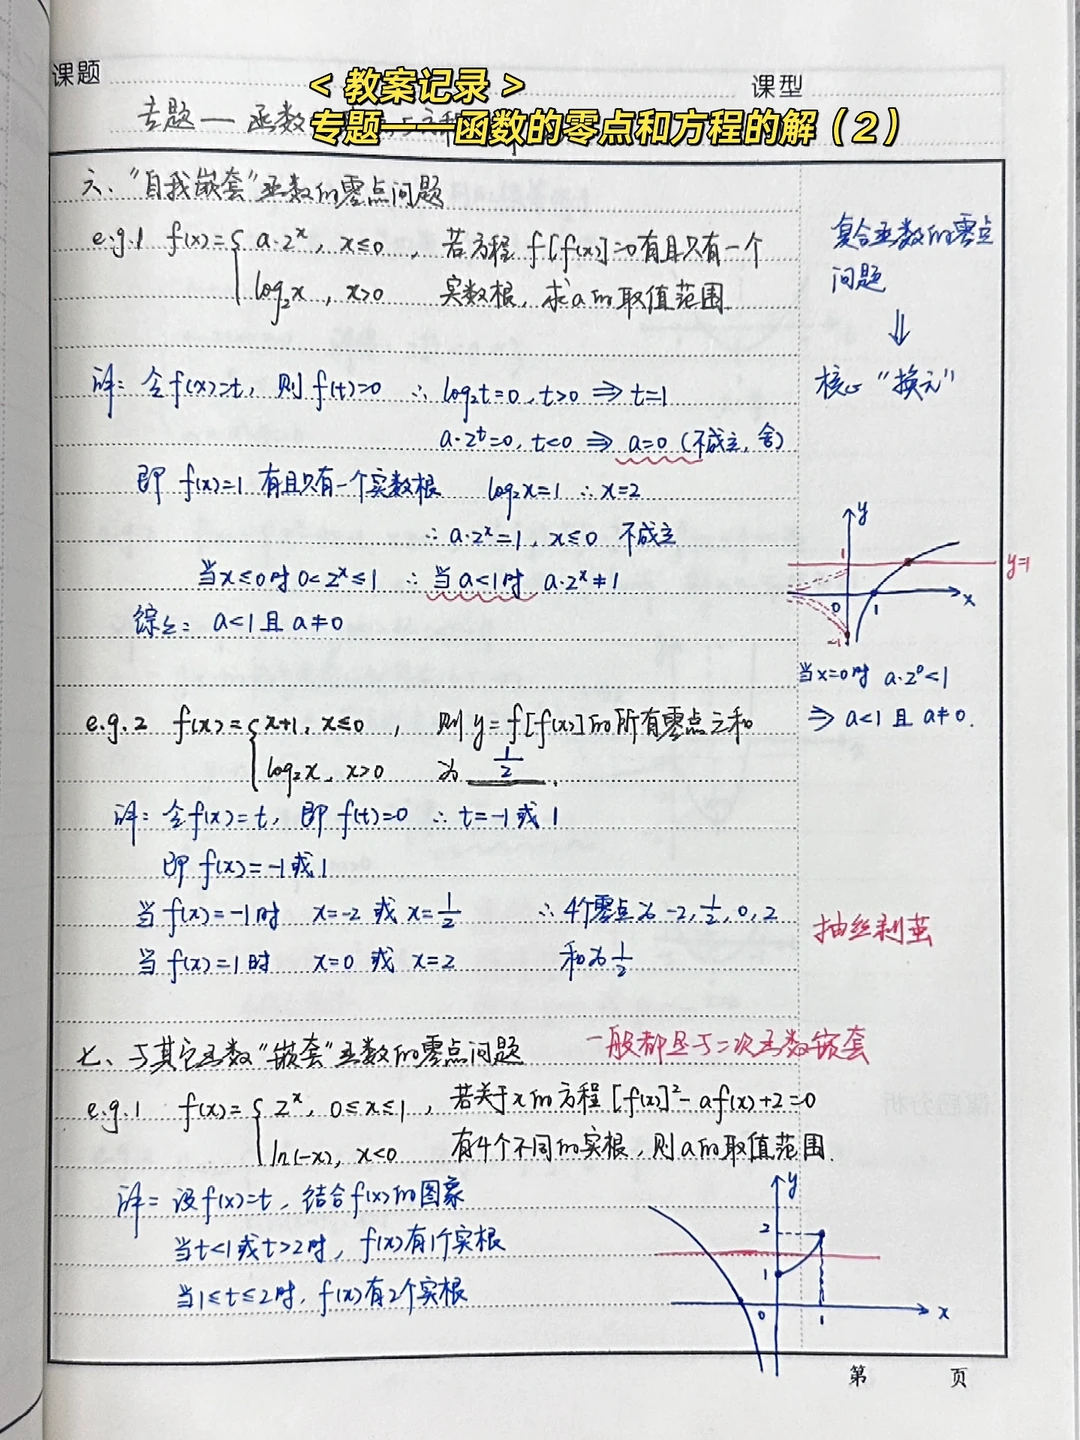 课题
< 教案记录 >
课型
专题一 函数
专题一——函数的零点和方程的解（2）
六、“自我嵌套”函数的零点问题
e.g.1 f(x)={ a·2ˣ, x≤0 , 若方程 f[f(x)]=0有且只有一个
log₂x , x>0 实数根, 求a的取值范围.
复合函数的零点
问题
⇓
核心“换元”
解: 令f(x)=t, 则 f(t)=0 ∴ log₂t=0, t>0 ⇒ t=1
a·2ᵗ=0, t<0 ⇒ a=0 (不成立, 舍)
即 f(x)=1 有且只有一个实数根 log₂x=1 ∴ x=2
∴ a·2ˣ=1, x≤0 不成立
当x≤0时 0<2ˣ≤1 ∴ 当a<1时 a·2ˣ≠1
综上: a<1 且 a≠0
y
1
y=1
0
1
x
-1
当x=0时 a·2⁰<1
⇒ a<1 且 a≠0.
e.g.2 f(x)={ x+1, x≤0 , 则 y=f[f(x)]的所有零点之和
log₂x, x>0 为 1/2 .
解: 令f(x)=t, 即 f(t)=0 ∴ t=-1 或 1
即 f(x)=-1或1
当 f(x)=-1时 x=-2 或 x=1/2 ∴ 4个零点为 -2, 1/2, 0, 2
当 f(x)=1时 x=0 或 x=2 和为1/2
抽丝剥茧
七、与其它函数“嵌套”函数的零点问题 一般都是与二次函数嵌套
e.g.1 f(x)={ 2ˣ, 0≤x≤1 , 若关于x的方程 [f(x)]²-af(x)+2=0
ln(-x), x<0 有4个不同的实根, 则a的取值范围.
解: 设f(x)=t, 结合f(x)的图象
当t<1或t>2时, f(x)有1个实根
当1≤t≤2时, f(x)有2个实根
y
2
1
0
1
x
第 页